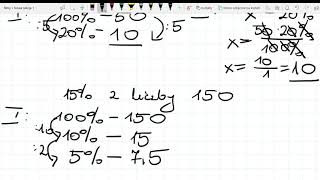 I: 100% - 50
:5 20% - 10 :5
x - 20%
x = 50 · 20% / 100%
x = 10/1 = 10
15% z liczby 150
I: 100% - 150
:10 10% - 15
:2 5% - 7,5